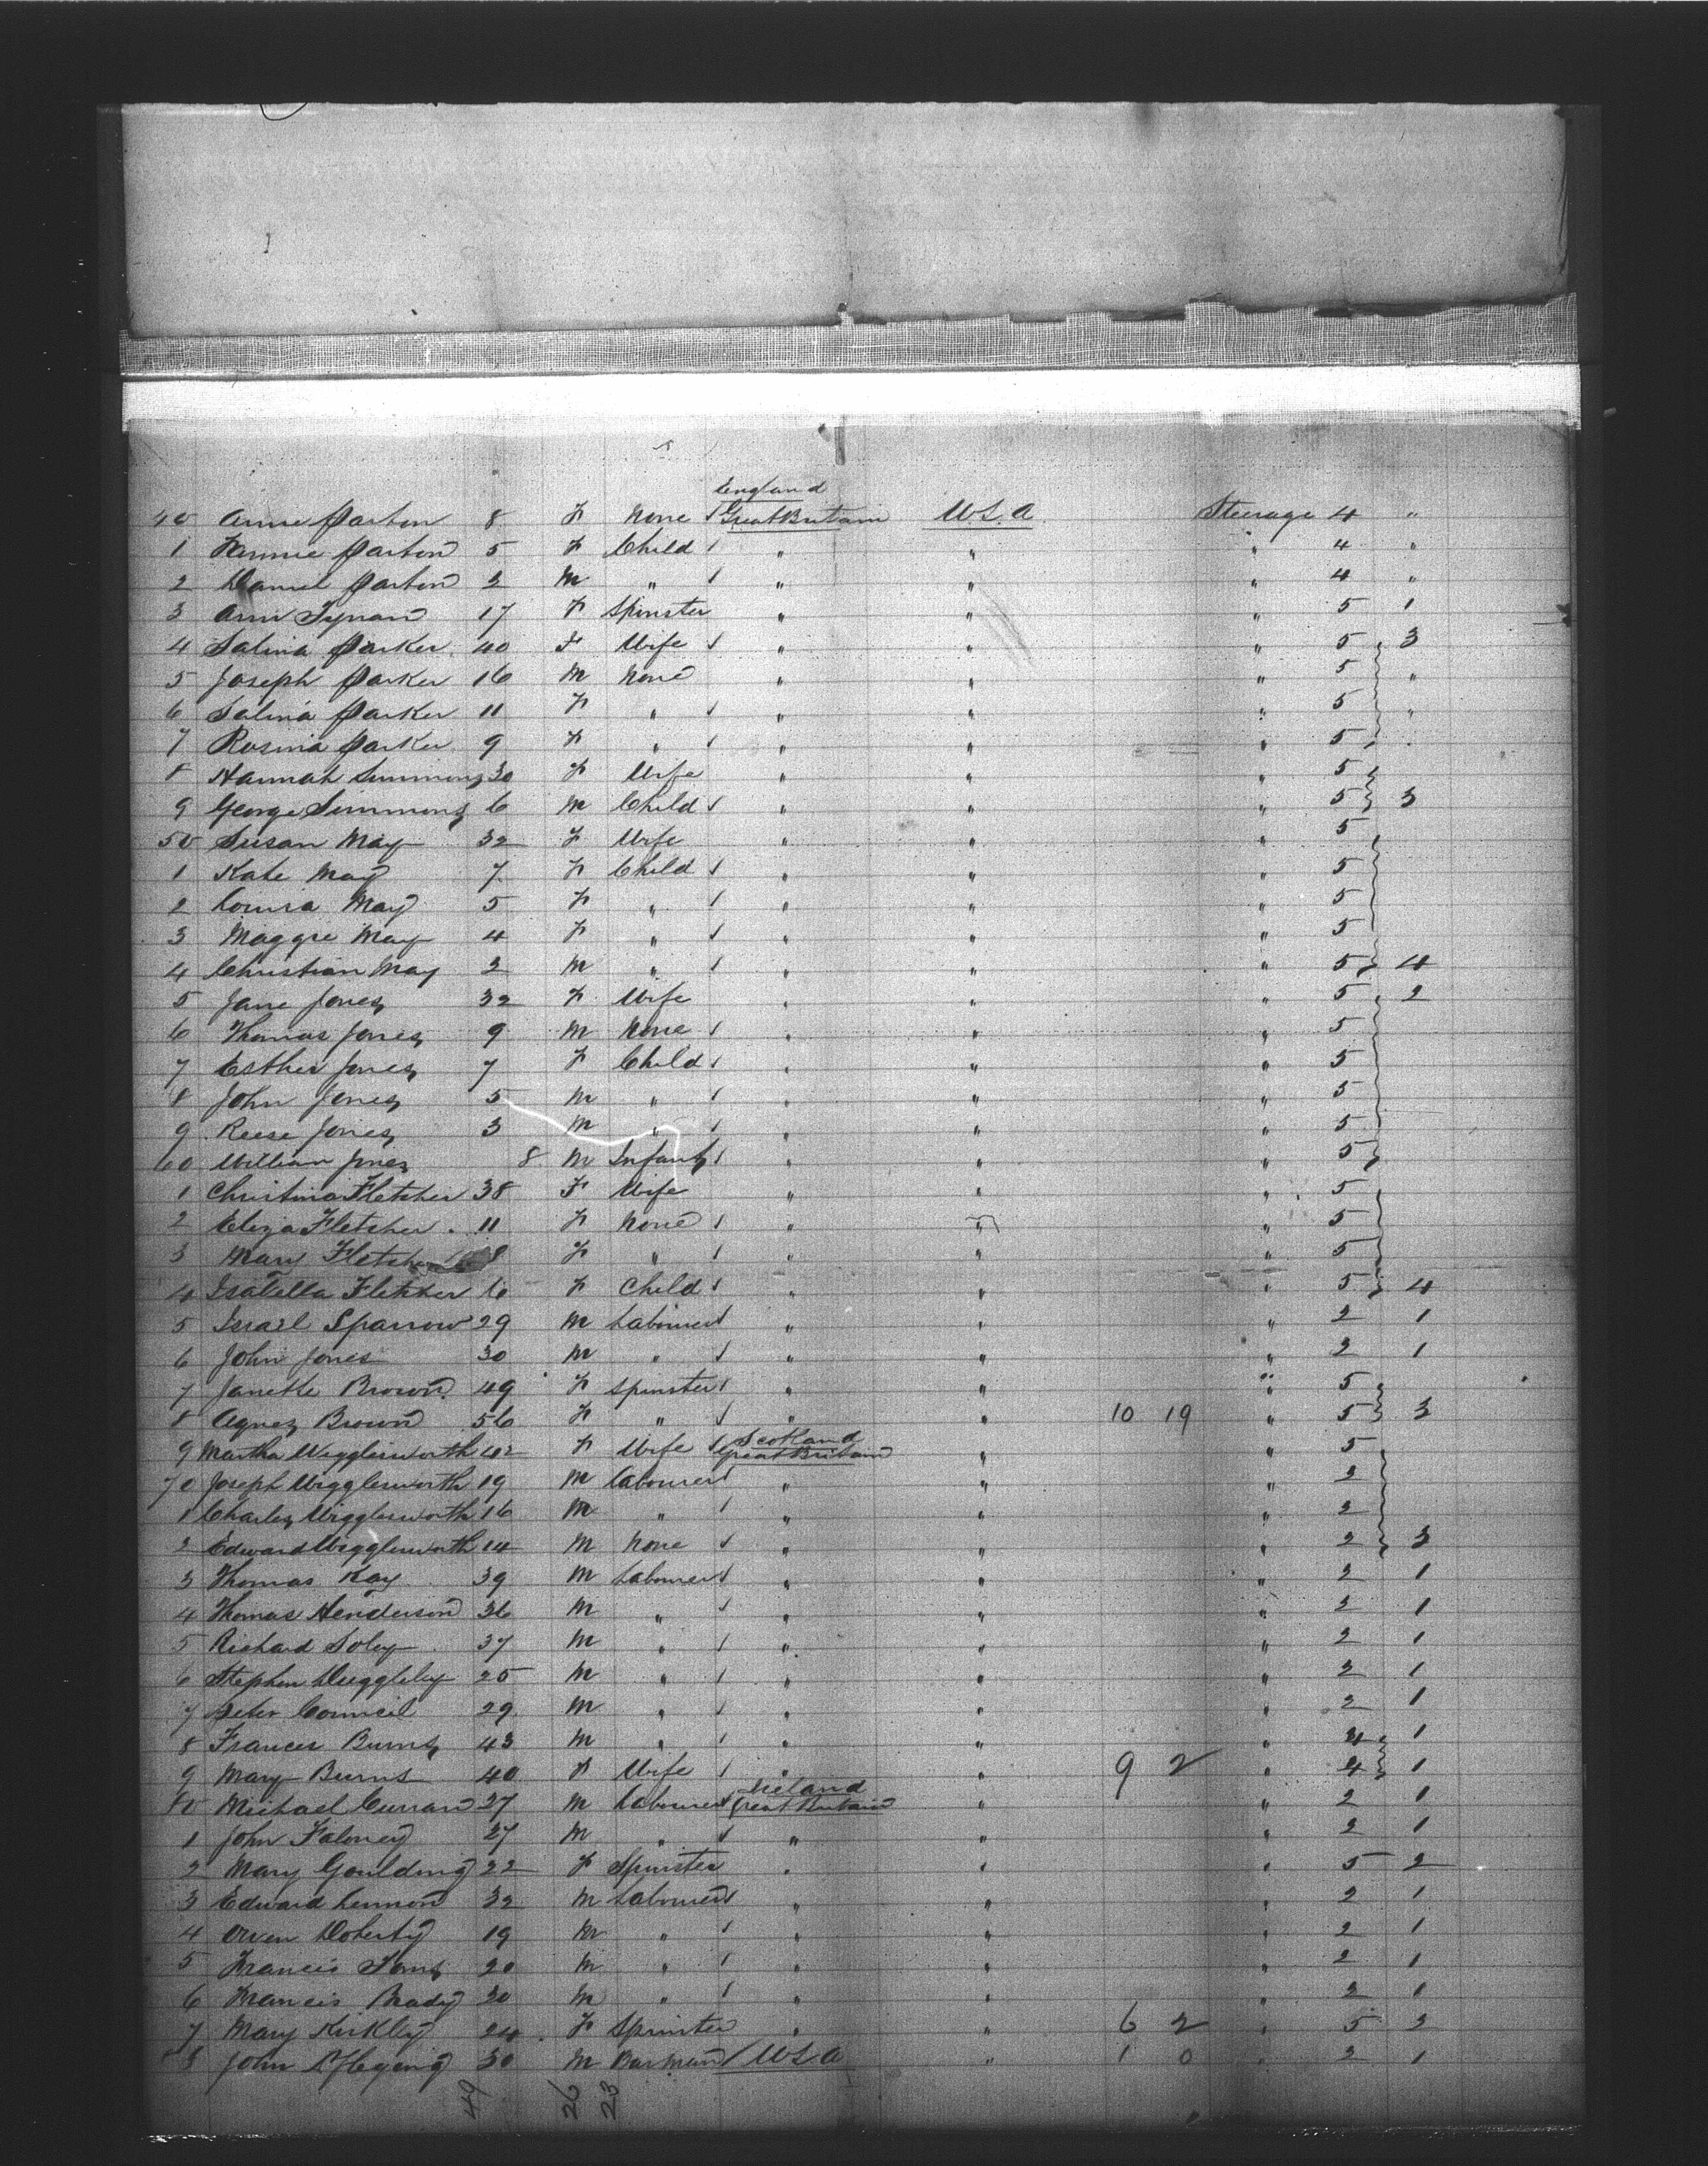 England
40 Annie Parton 8 F None / Great Britain U.S.A. Steerage 4 "
1 Fannie Parton 5 F Child / " " " 4 "
2 Daniel Parton 2 M " / " " " 4 "
3 Ann Tynan 17 F Spinster " " " 5 1
4 Salina Parker 40 F Wife / " " " 5 3
5 Joseph Parker 16 M None " " " 5 "
6 Salina Parker 11 F " / " " " 5 "
7 Rosina Parker 9 F " / " " " 5 "
8 Hannah Simmons 30 F Wife " " " 5
9 George Simmons 6 M Child / " " " 5 3
50 Susan May 32 F Wife " " " 5
1 Kate May 7 F Child / " " " 5
2 Louisa May 5 F " / " " " 5
3 Maggie May 4 F " / " " " 5
4 Christian May 2 M " / " " " 5 4
5 Jane Jones 32 F Wife " " " 5 2
6 Thomas Jones 9 M None / " " " 5
7 Esther Jones 7 F Child / " " " 5
8 John Jones 5 M " / " " " 5
9 Reese Jones 3 M " / " " " 5
60 William Jones 8 M Infant / " " " 5
1 Christina Fletcher 38 F Wife " " " 5
2 Eliza Fletcher 11 F None / " " " 5
3 Mary Fletcher 8 F " / " " " 5
4 Isabella Fletcher 6 F Child / " " " 5 4
5 Israel Sparrow 29 M Labourer / " " " 2 1
6 John Jones 30 M " / " " " 2 1
7 Janette Brown 49 F Spinster / " " " 5
8 Agnes Brown 56 F " / " " 10 19 " 5 3
Scotland
9 Martha Wigglesworth 42 F Wife / Great Britain " " 5
70 Joseph Wigglesworth 19 M Labourer / " " " 2
1 Charles Wigglesworth 16 M " / " " " 2
2 Edward Wigglesworth 14 M None / " " " 2 3
3 Thomas Kay 39 M Labourer / " " " 2 1
4 Thomas Henderson 36 M " / " " " 2 1
5 Richard Soley 37 M " / " " " 2 1
6 Stephen Duggleby 25 M " / " " " 2 1
7 Peter Council 29 M " / " " " 2 1
8 Frances Burns 43 M " / " " " 4 1
9 Mary Burns 40 F Wife / " " 9 2 " 4 1
Ireland
80 Michael Curran 27 M Labourer / Great Britain " " 2 1
1 John Faloney 27 M " / " " " 2 1
2 Mary Goulding 22 F Spinster " " " 5 2
3 Edward Lennon 32 M Labourer / " " " 2 1
4 Owen Doherty 19 M " / " " " 2 1
5 Francis 20 M " / " " " 2 1
6 Francis Brady 20 M " / " " " 2 1
7 Mary Kirkley 24 F Spinster " " 6 2 " 5 2
8 John 30 M Barman / U.S.A " 1 0 " 2 1
49 26 23